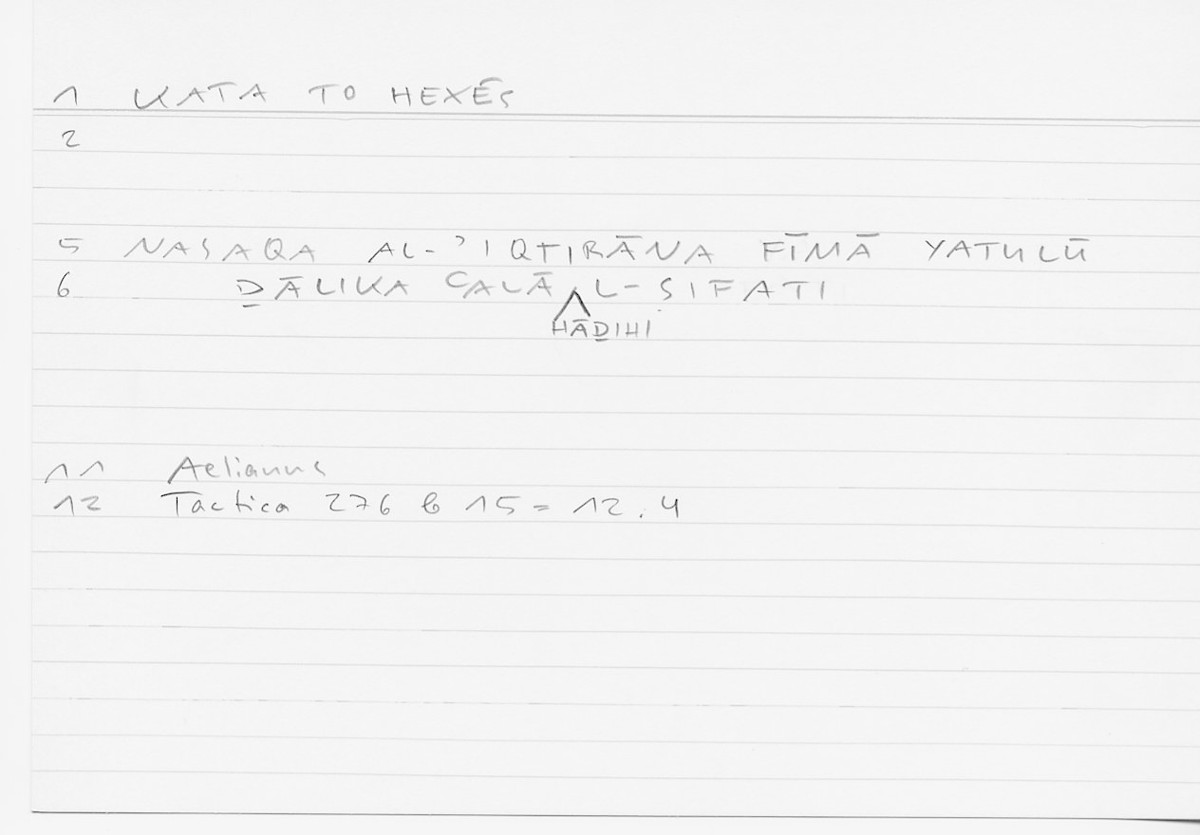 1 KATA TO HEXĒS
2
5 NASAQA AL-ʾIQTIRĀNA FĪMĀ YATULŪ
6 ḎĀLIKA ʿALĀ L-SIFATI
HĀḎIHI
11 Aelianus
12 Tactica 276 b 15 = 12.4